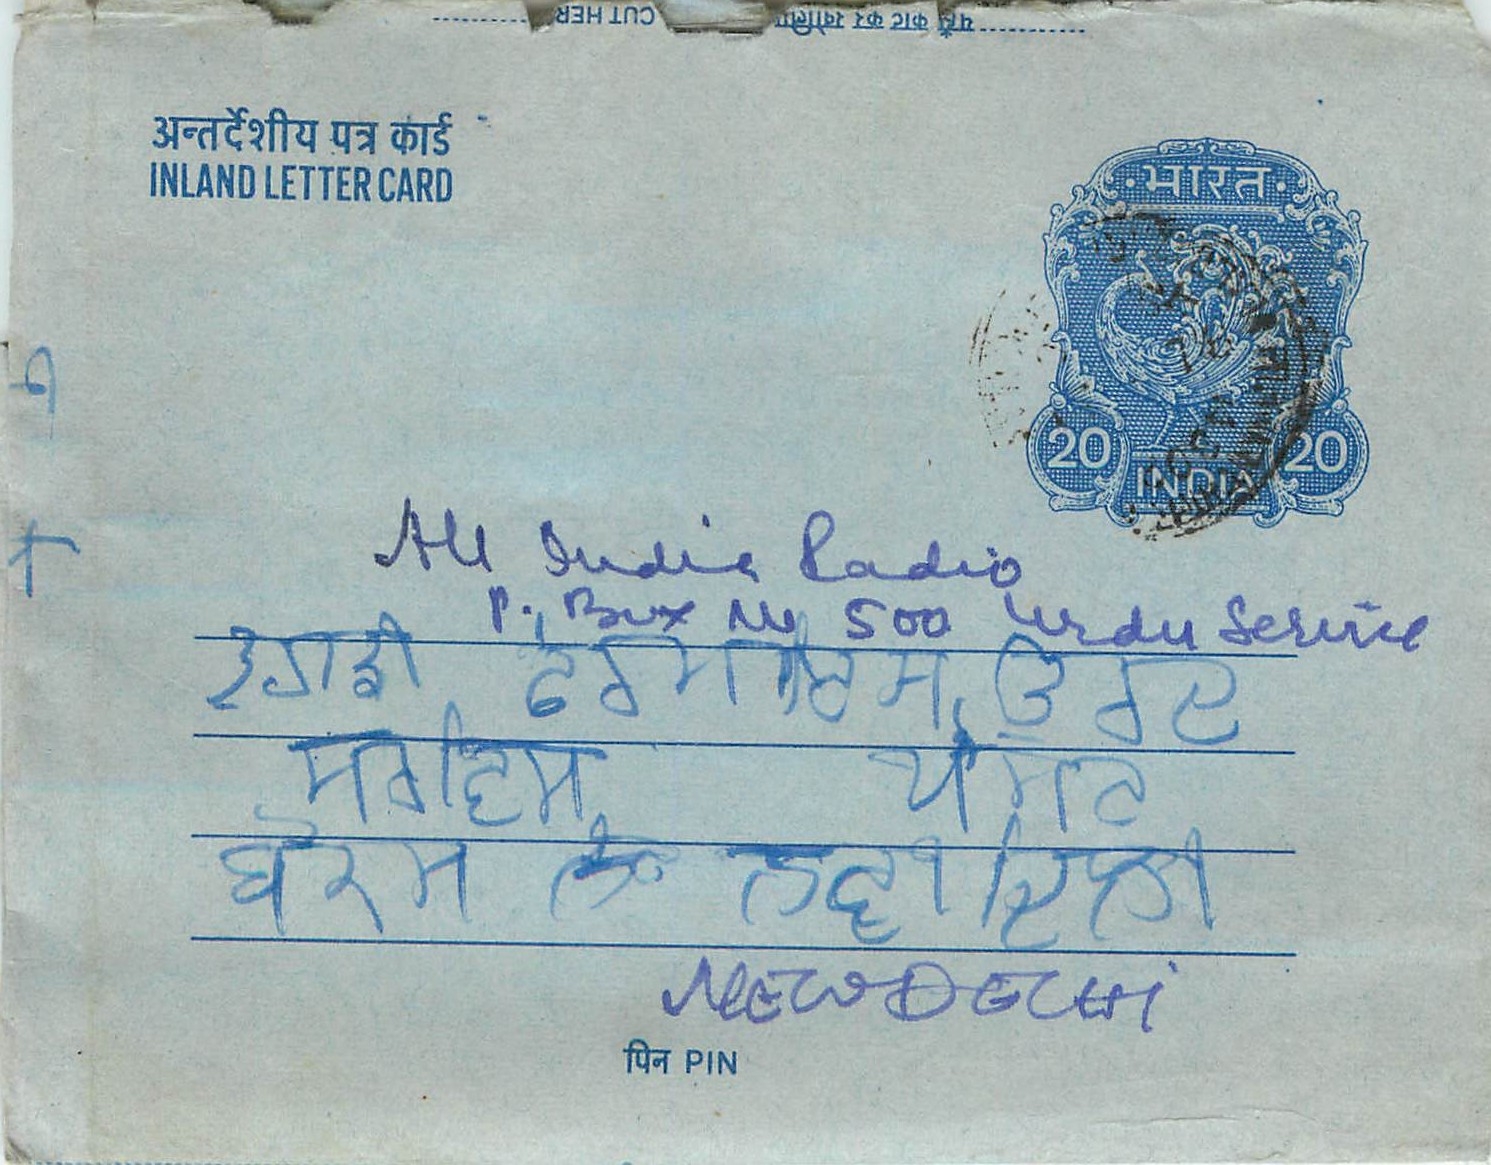 यहाँ काट कर खोलिए
CUT HER
अन्तर्देशीय पत्र कार्ड
INLAND LETTER CARD
भारत
20 20
INDIA
All India Radio
P. Box No 500 Urdu Service
ਫਰਮਾਇਸ, ਉਰਦ
ਸਰਵਿਸ, ਪੋਸਟ
ਬੋਕਸ ਨੰ ਨਵੀ ਦਿਲੀ
NEW DELHI
पिन PIN